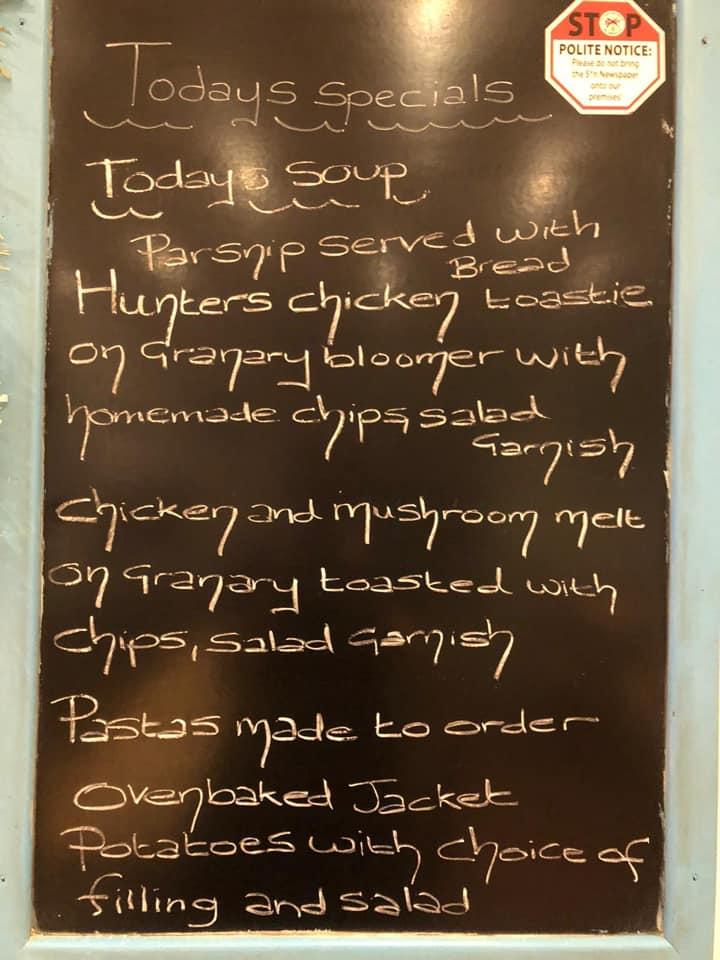 STOP
POLITE NOTICE:
Please do not bring
the S*n Newspaper
onto our
premises
Todays specials
Todays Soup
Parsnip served with
Bread
Hunters chicken toastie
on Granary bloomer with
homemade chips, salad
Garnish
Chicken and mushroom melt
on Granary toasted with
chips, salad Garnish
Pastas made to order
Ovenbaked Jacket
Potatoes with choice of
filling and salad